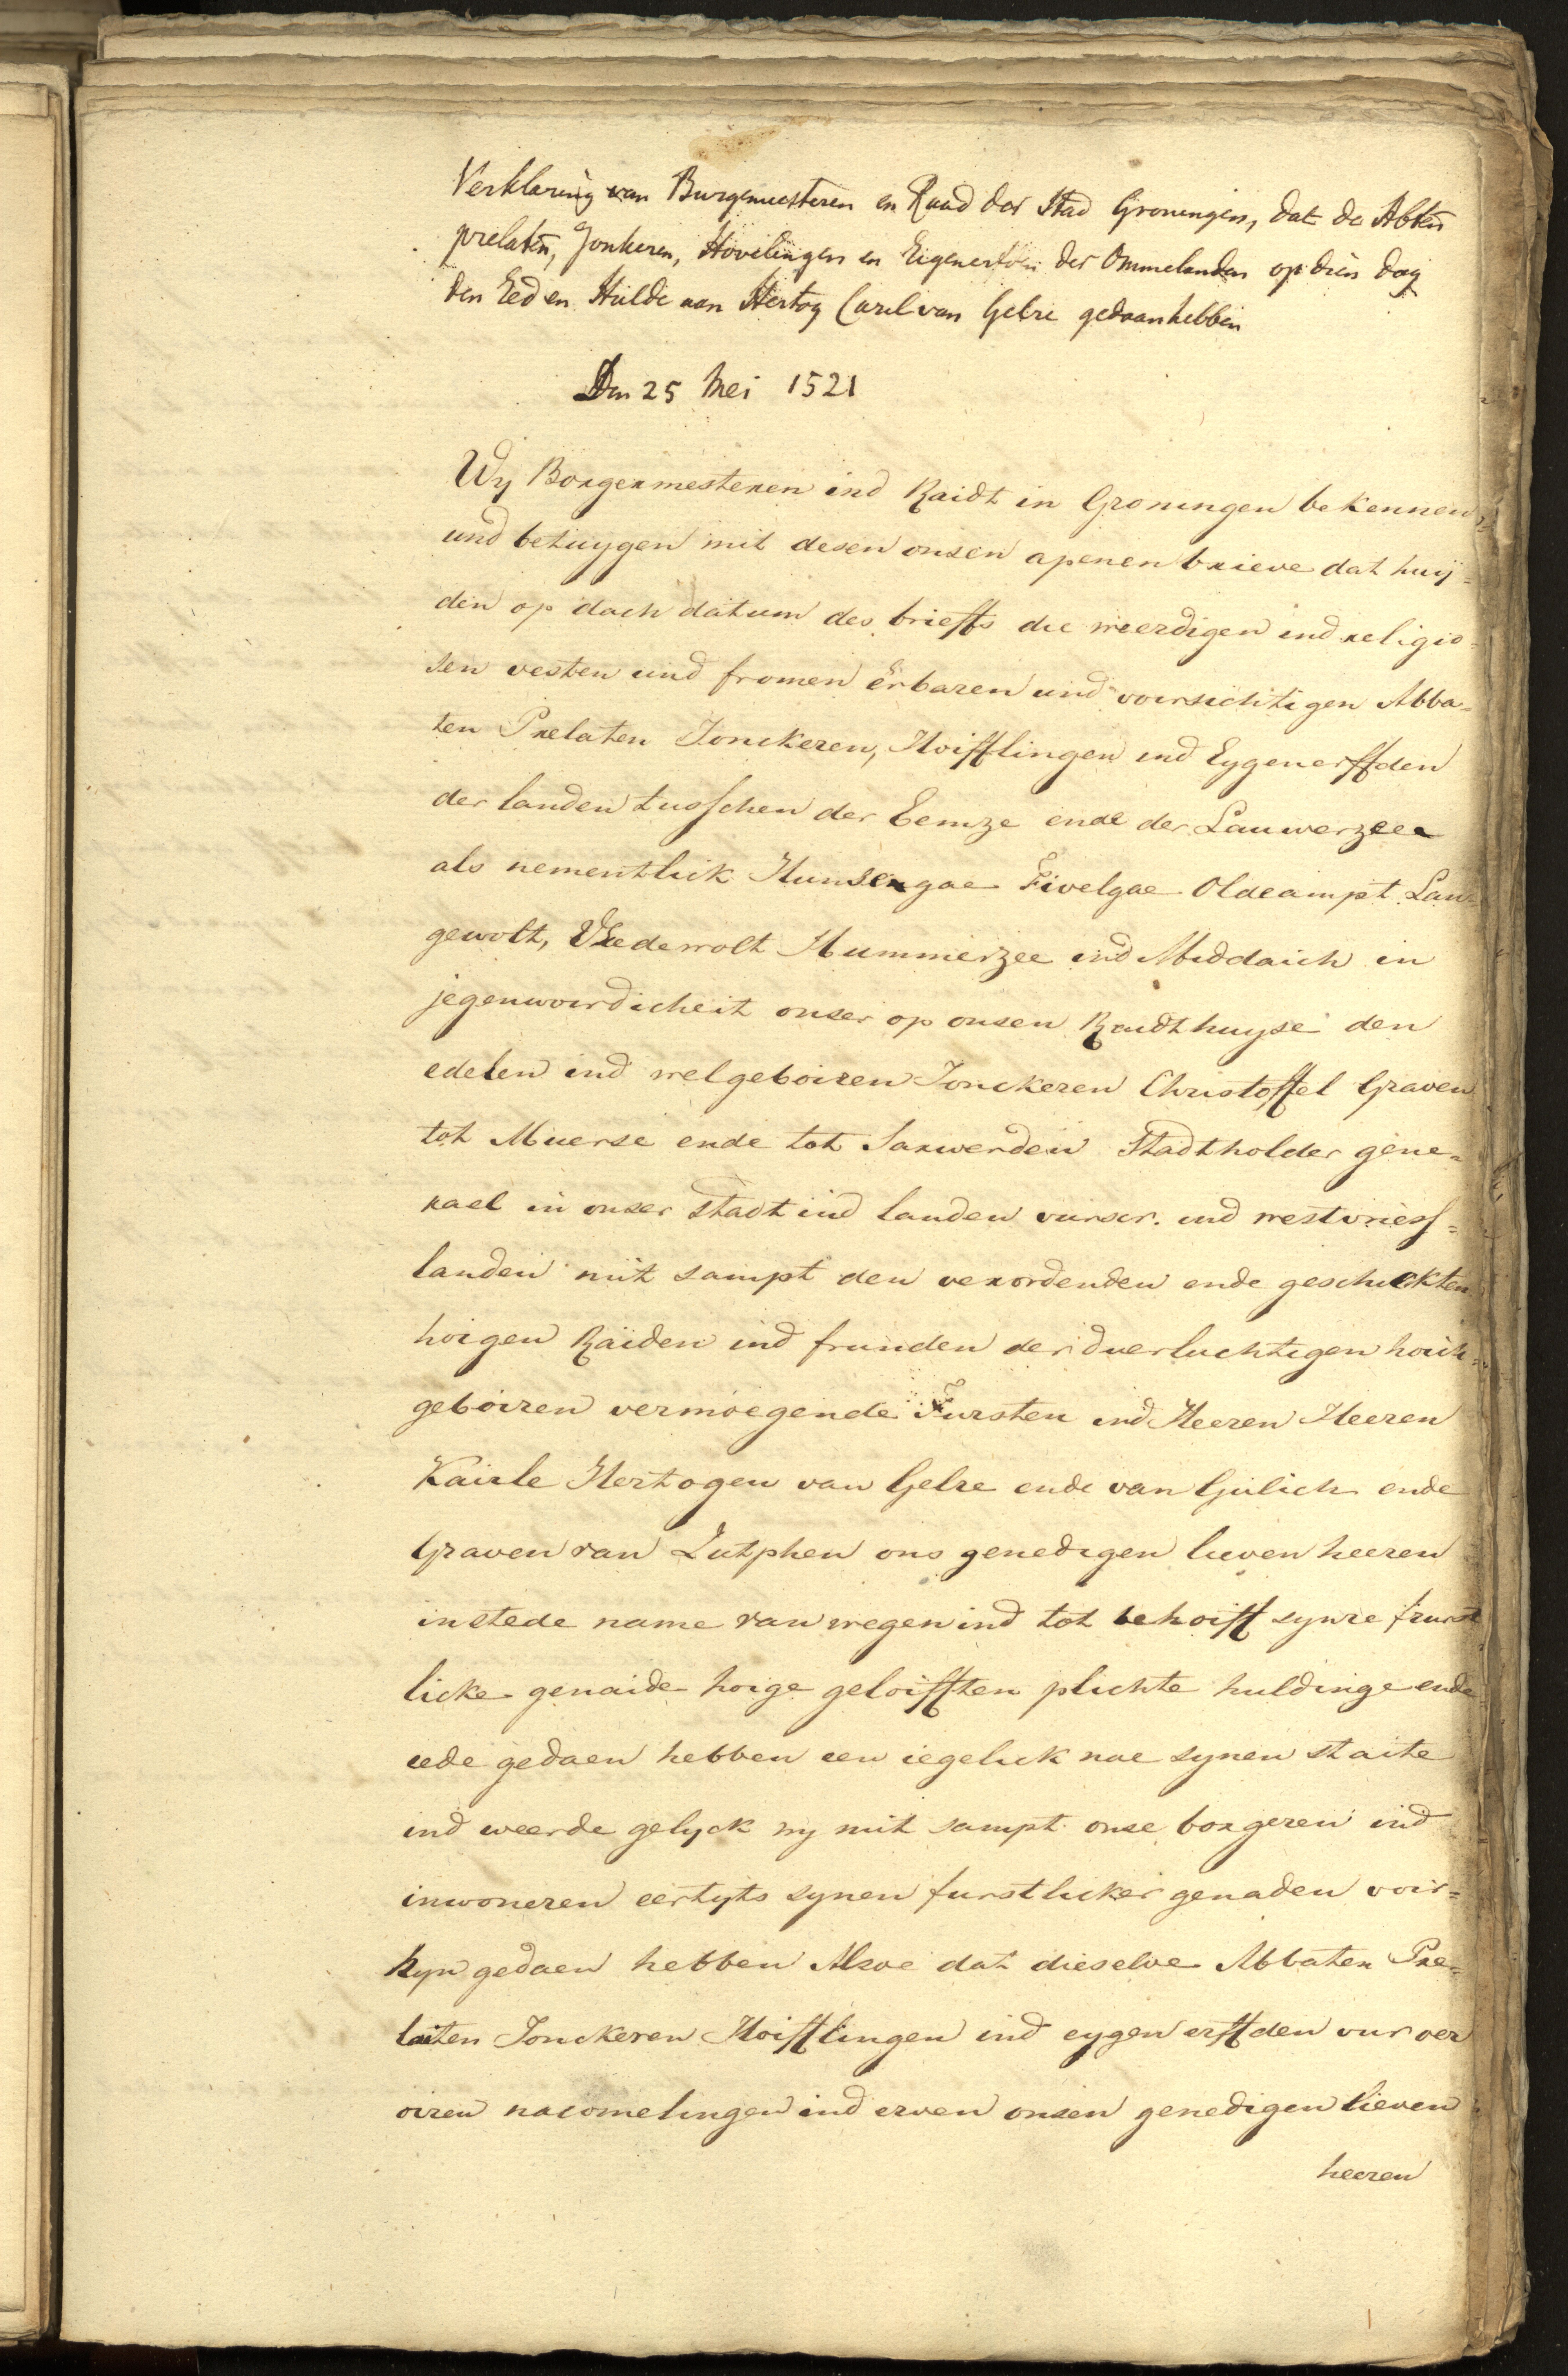 Verklaring van Burgemeesteren en Raad der Stad Groningen, dat de Abten
prelaten, Jonkeren, Hovelingen en Eigenerfden der Ommelanden op dien dag
den Eed en Hulde aan Hertog Carel van Gelre gedaan hebben
Den 25 Mei 1521
Wy Borgermesteren ind Raidt in Groningen bekennen
und betuygen mit desen onsen apenen brieve dat huÿ=
den op dach datum des brieffs die weerdigen ind religio=
sen vesten und fromen erbaren und voirsichtigen Abba=
ten Prelaten Jonckeren, Hoifflingen ind Eygenerffden
der landen tusschen der Eemze ende der Lauwerzee
als nementlick Hunsengae Fivelgae Oldeampt Lan=
gewolt, Vredewolt Hummerzee ind Middaich in
jegenwoirdicheit onser op onsen Raidthuyse den
edelen ind welgeboiren Jonckeren Christoffel Graven
tot Muerse ende tot Sarwerden Stadtholder gene=
rael in onser stadt ind landen vurscr. ind westvriess=
landen mit sampt den verordenden ende geschickten
hoigen Raiden ind frunden der duerluchtigen hoich=
geboiren vermoegende Fursten ind Heeren Heeren
Kairle Hertogen van Gelre ende van Gulich ende
Graven van Zutphen ons genedigen lieven heeren
in stede name van wegen ind tot behoiff synre furst
licke genaide hoige geloifften plichte huldinge ende
eede gedaen hebben een iegelick nae synen staite
ind weerde gelyck wy mit sampt onse borgeren ind
inwoneren eertyts synen furstlicker genaden voir=
hyn gedaen hebben Alsoe dat dieselve Abbaten Pre=
laiten Jonckeren Hoifflingen ind eygen erffden vur oer
oiren nacomelingen ind erven onsen genedigen lieven
heeren